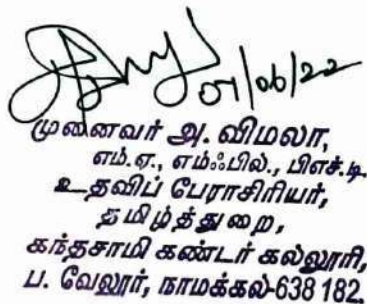 01/06/22
முனைவர் அ. விமலா,
எம்.ஏ., எம்ஃபில்., பிஎச்.டி.
உதவிப் பேராசிரியர்,
தமிழ்த்துறை,
கந்தசாமி கண்டர் கல்லூரி,
ப. வேலூர், நாமக்கல்-638 182.